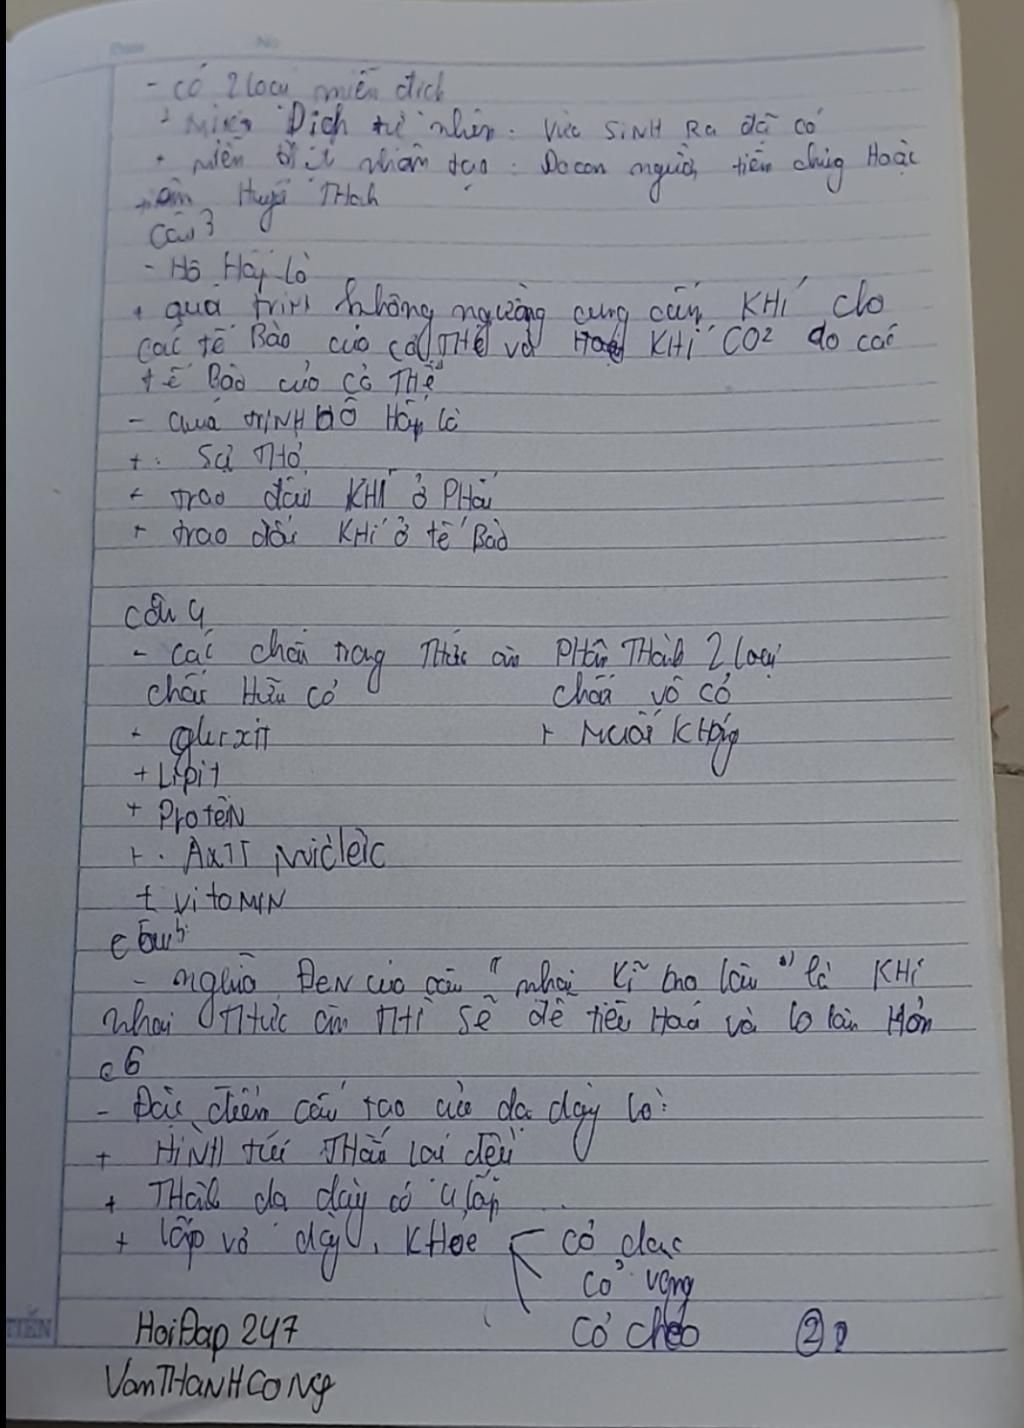 - có 2 loại miễn dịch
+ Miễn Dịch tự nhiên: Vừa SiNH Ra đã có
+ miễn dịch nhân tạo: Do con người tiêm chủng Hoặc
Huyết THanh
Câu 3
- Hô Hấp là
+ quá trình không ngường cung cấp KHÍ cho
các tế Bào của cơ THể và KHÍ CO2 do các
tế Bào của cơ THể
- Quá trINH HÔ Hấp là
+ Sự THở
+ trao đổi KHÍ ở PHổi
+ trao đổi KHí ở tế Bào
Câu 4
- các chất trong THức ăn PHân THành 2 loại
chất Hữu cơ chất vô cơ
+ gluxit + Muối KHóng
+ Lipit
+ ProteiN
+ AxIT Nucleic
+ vitaMIN
câu 5
- nghĩa ĐEN của câu " nhai kĩ no lâu " là KHI
nhai THức ăn THÌ Sẽ dễ tiêu Hoá và lo lâu Hơn
c6
- Đặc điểm cấu tạo của dạ dày là:
+ HìNH túi THắt lại đều
+ THành dạ dày có 4 lớp
+ lớp vỏ dày, KHỏe cơ dọc
cơ vòng
TIẾN HoiĐap 247 cơ chéo 2
VanTHANHCONg